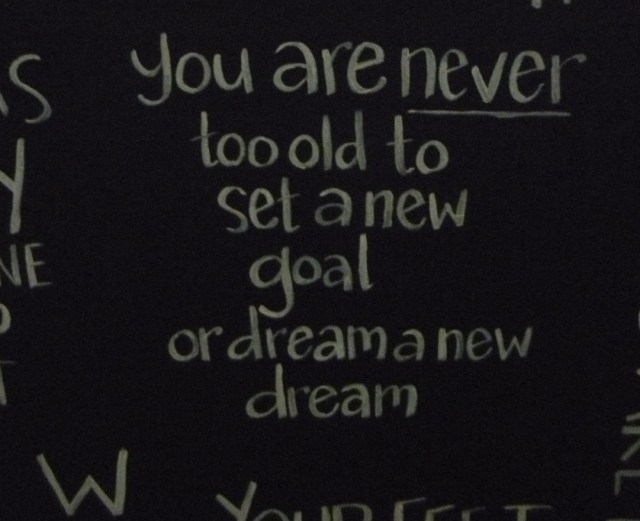 you are never
too old to
set a new
goal
or dream a new
dream
W
YOUR FEET